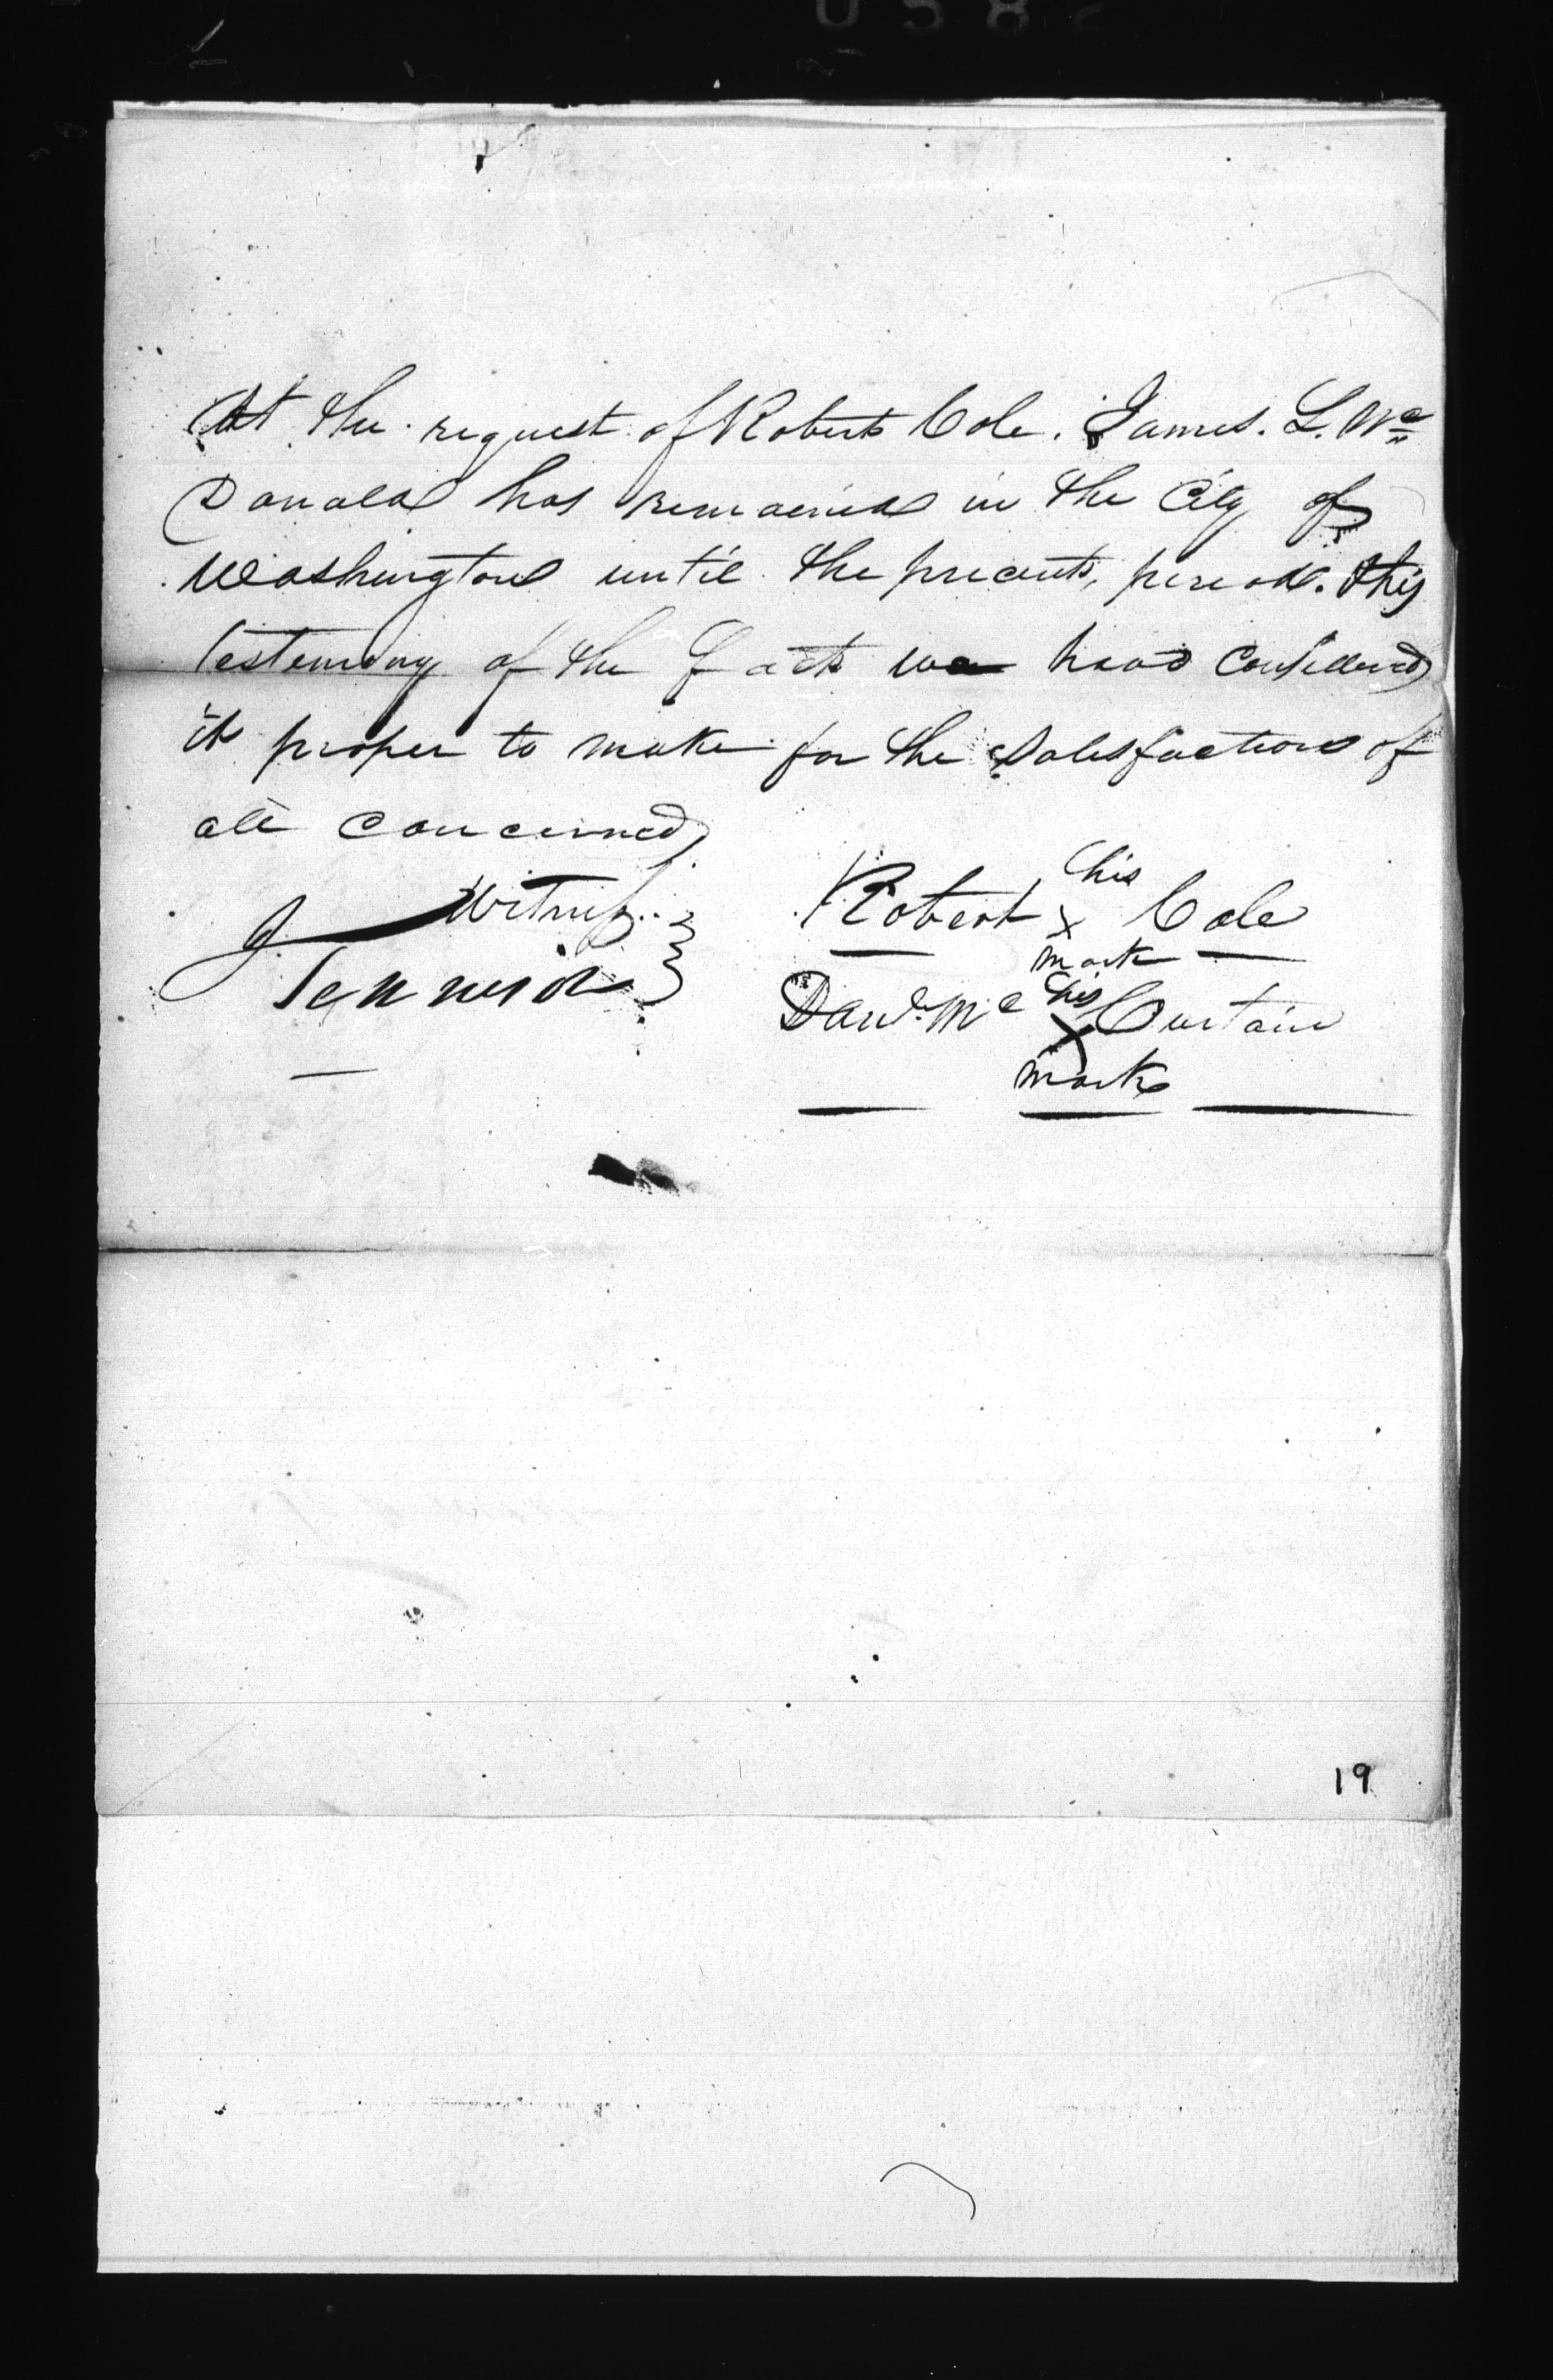 At the request of Robert Cole. James. L. Mc
Donald has remained in the City of
Washington until the present, period. this
testimony of the fact we have considered
it proper to make for the satisfaction of
all concerned,
Witness
J
Robert his x mark Cole
Danl. Mc his X mark Curtain
19